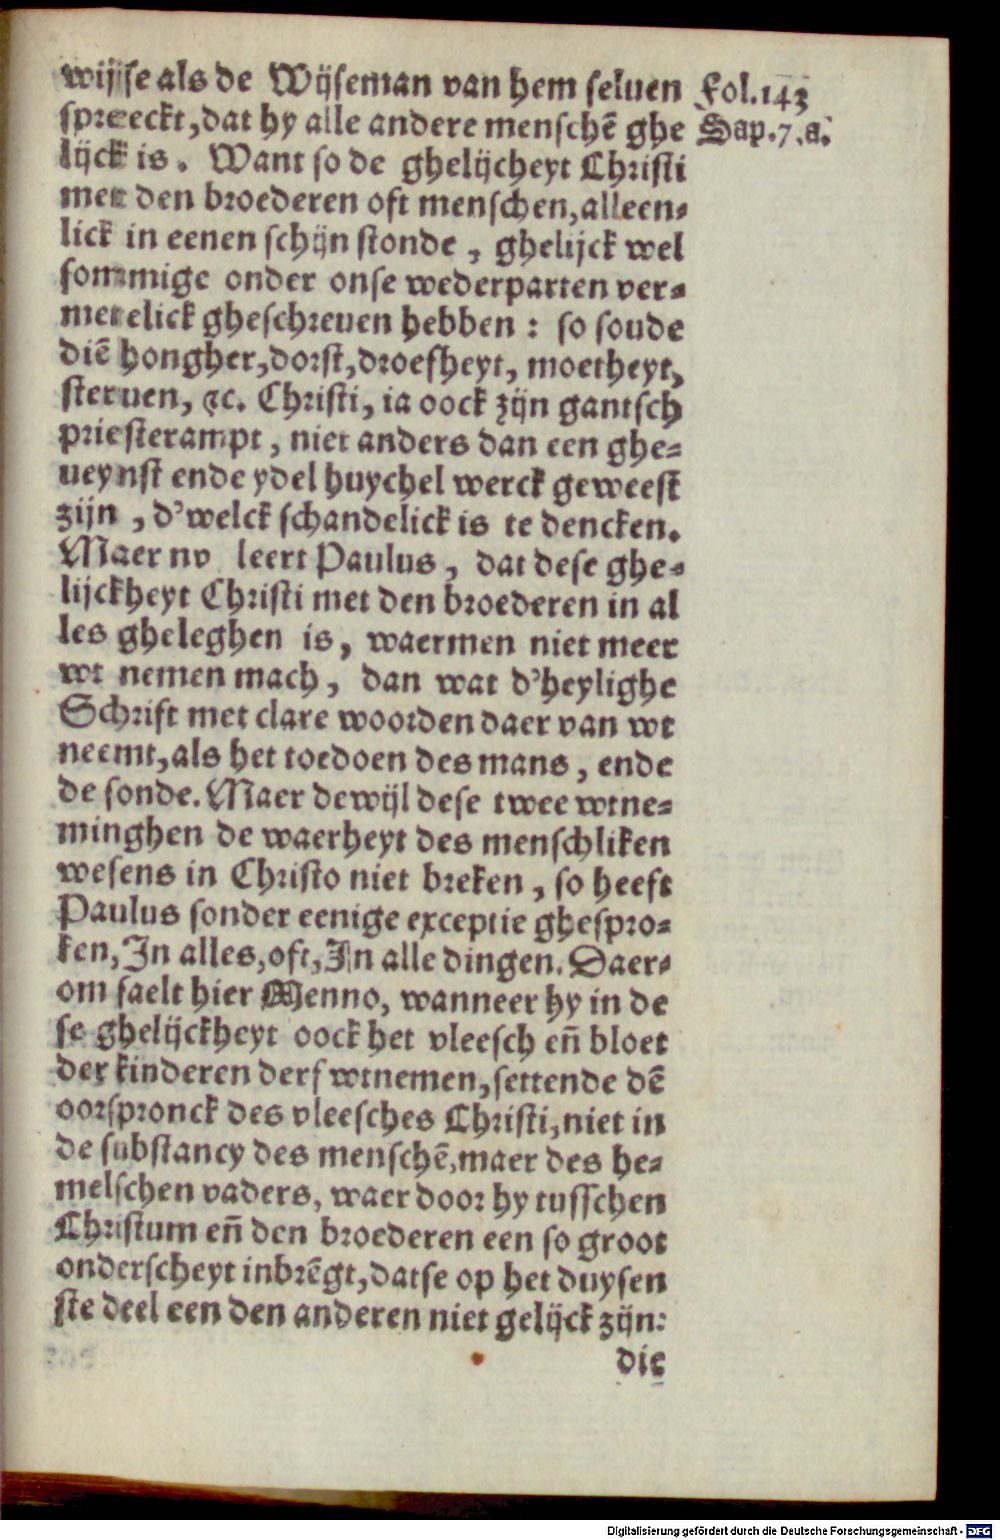 wijse als de Wijseman van hem seluen Fol.143
spreeckt, dat hy alle andere menschē ghe Sap.7.a.
lijck is. Want so de ghelijcheyt Christi
met den broederen oft menschen, alleen-
lick in eenen schijn stonde, ghelijck wel
sommige onder onse wederparten ver-
metelick gheschreuen hebben: so soude
diē hongher, dorst, droefheyt, moetheyt,
steruen, &c. Christi, ia oock zijn gantsch
priesterampt, niet anders dan een ghe-
ueynst ende ydel huychel werck geweest
zijn, d'welck schandelick is te dencken.
Maer nv leert Paulus, dat dese ghe-
lijckheyt Christi met den broederen in al
les gheleghen is, waermen niet meer
wt nemen mach, dan wat d'heylighe
Schrift met clare woorden daer van wt
neemt, als het toedoen des mans, ende
de sonde. Maer dewijl dese twee wtne-
minghen de waerheyt des menschliken
wesens in Christo niet breken, so heeft
Paulus sonder eenige exceptie ghespro-
ken, In alles, oft, In alle dingen. Daer-
om faelt hier Menno, wanneer hy in de
se ghelijckheyt oock het vleesch eñ bloet
der kinderen derf wtnemen, settende dē
oorspronck des vleesches Christi, niet in
de substancy des menschē, maer des he-
melschen vaders, waer door hy tusschen
Christum eñ den broederen een so groot
onderscheyt inbrēgt, datse op het duysen
ste deel een den anderen niet gelijck zijn:
die
Digitalisierung gefördert durch die Deutsche Forschungsgemeinschaft - DFG